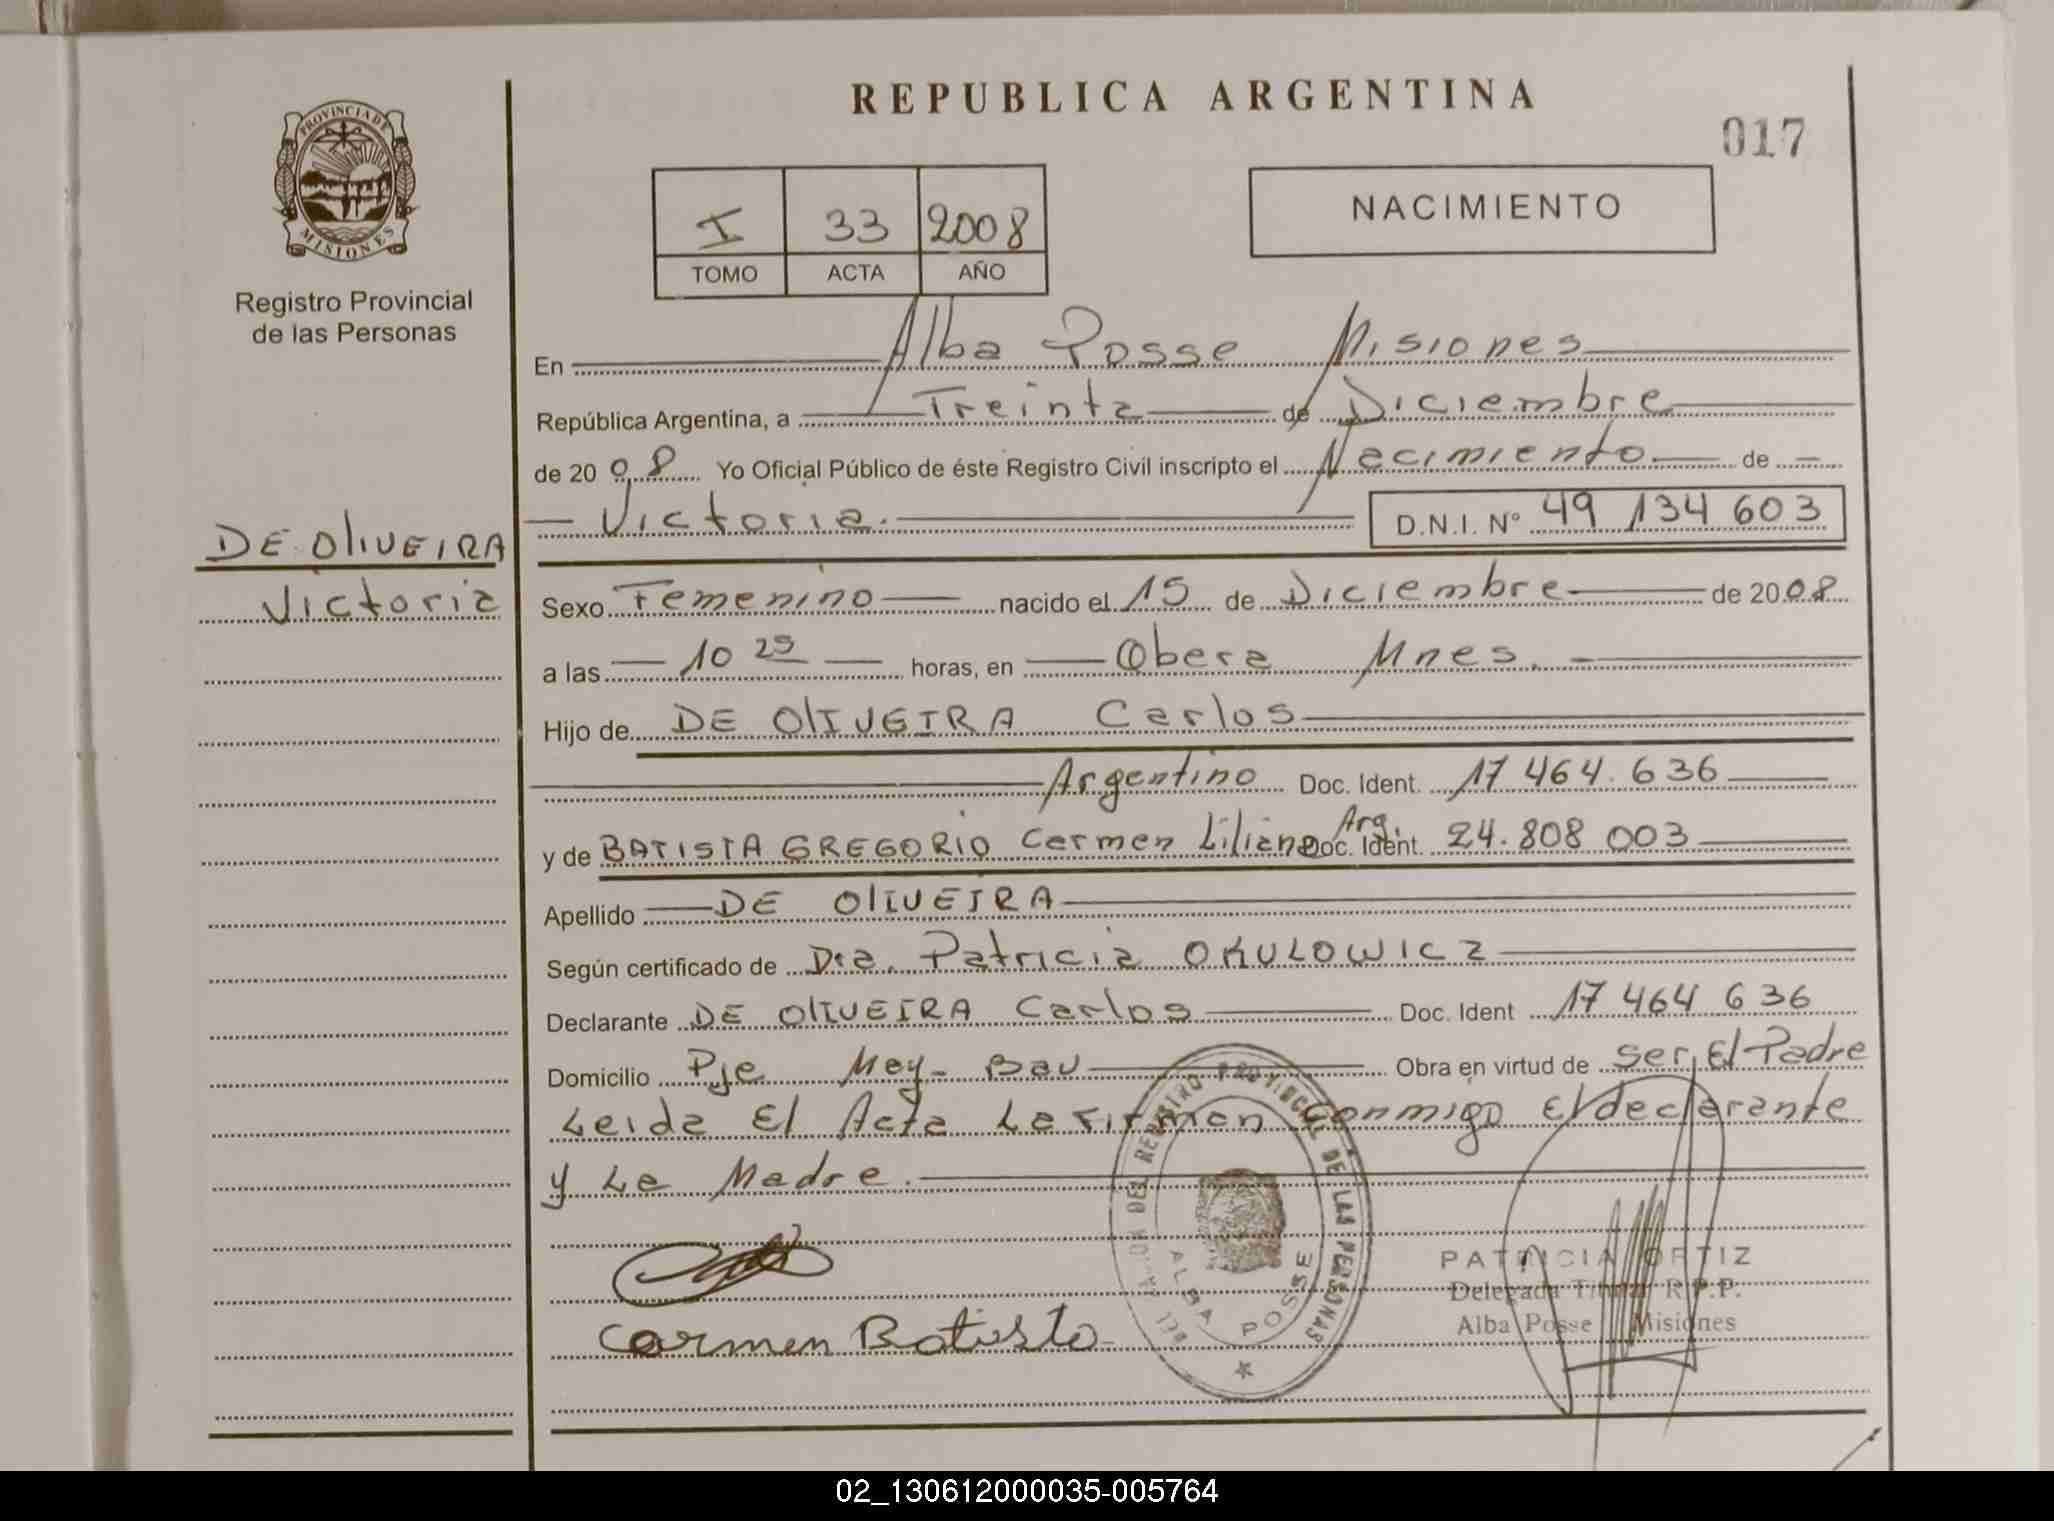 REPUBLICA ARGENTINA
017
PROVINCIA DE
MISIONES
Registro Provincial
de las Personas
I 33 2008
TOMO ACTA AÑO
NACIMIENTO
En Alba Posse Misiones
República Argentina, a Treinta de Diciembre
de 2008 Yo Oficial Público de éste Registro Civil inscripto el Nacimiento de
Victoria. D.N.I. Nº 49 134 603
DE OlIVEIRA
Victoria
Sexo Femenino nacido el 15 de Diciembre de 2008
a las 10 25 horas, en Obera Mnes.
Hijo de DE OlIVEIRA Carlos
Argentino Doc. Ident. 17 464.636
y de BATISTA GREGORIO Carmen Liliana Arg. Doc. Ident. 24.808 003
Apellido DE OlIVEIRA
Según certificado de Dra. Patricia OKULOWICZ
Declarante DE OlIVEIRA Carlos Doc. Ident 17 464 636
Domicilio Pje Mey-Bau Obra en virtud de ser El Padre
Leida El Acta La Firman Conmigo El declarante
y La Madre.
Carmen Batista
DELEGACION DEL REGISTRO PROVINCIAL DE LAS PERSONAS
ALBA POSSE
PATRICIA ORTIZ
Delegada Titular R.P.P.
Alba Posse Misiones
02_130612000035-005764